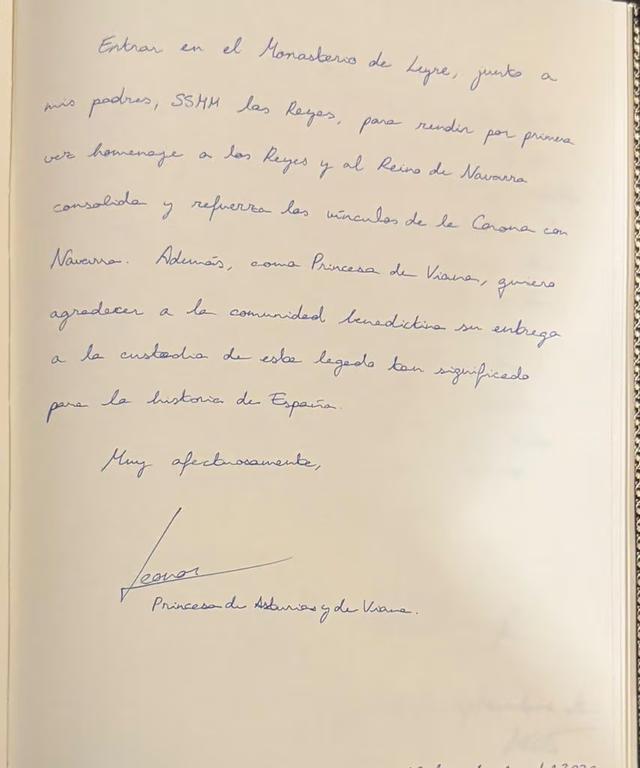 Entrar en el Monasterio de Leyre, junto a
mis padres, SSMM los Reyes, para rendir por primera
vez homenaje a los Reyes y al Reino de Navarra
consolida y refuerza los vínculos de la Corona con
Navarra. Además, como Princesa de Viana, quiero
agradecer a la comunidad benedictina su entrega
a la custodia de este legado tan significado
para la historia de España.
Muy afectuosamente,
Leonor
Princesa de Asturias y de Viana.